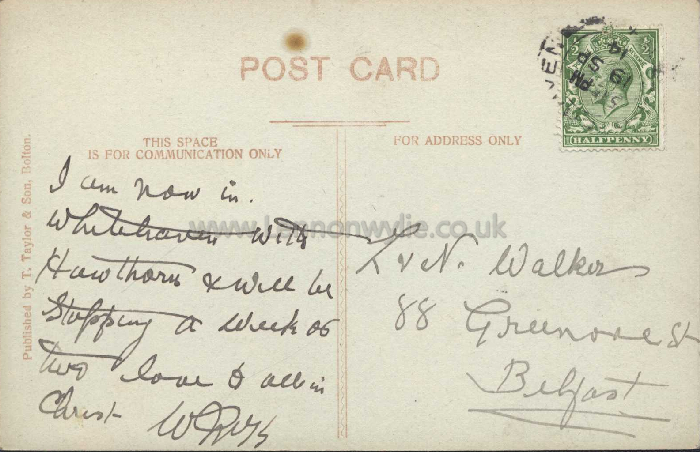 POST CARD
THIS SPACE
IS FOR COMMUNICATION ONLY
FOR ADDRESS ONLY
Published by T. Taylor & Son, Bolton.
½ ½
HALFPENNY
PM
19 SP
14
www.lennonwylie.co.uk
I am now in.
Whitehaven with
Hawthorn & will be
Stopping a week or
two love to all in
Christ
L & N. Walker
88
Belfast